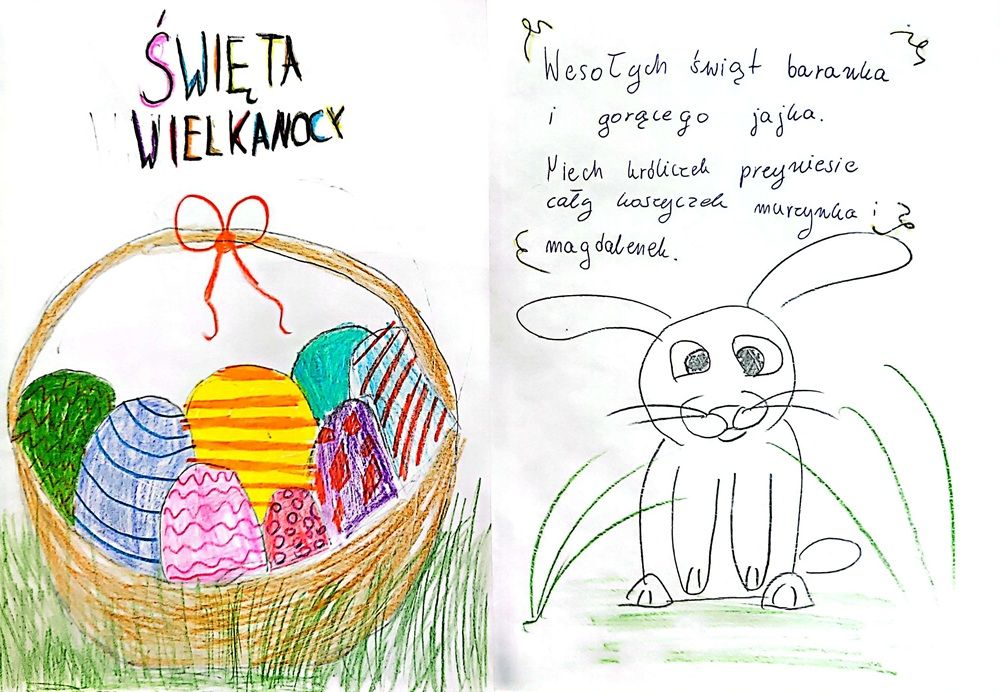 ŚWIĘTA
WIELKANOCY
Wesołych świąt baranka
i gorącego jajka.
Niech króliczek przyniesie
cały koszyczek murzynka i
magdalenek.